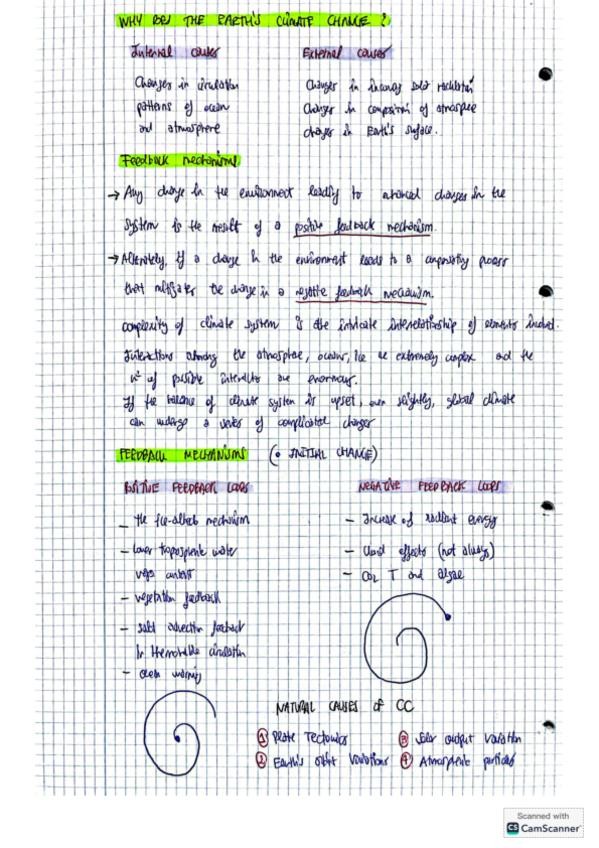 WHY DOES THE EARTH'S CLIMATE CHANGE?
Internal causes
External causes
Changes in circulation
patterns of ocean
and atmosphere
Changes in incoming solar radiation
Changes in composition of atmosphere
changes in Earth's surface.
Feedback mechanisms
→ Any change in the environment leading to changes in the
system is the result of a positive feedback mechanism.
→ Alternately, if a change in the environment leads to a compensating process
that mitigates the change is a negative feedback mechanism.
complexity of climate system is the intricate interrelationship of elements involved.
Interactions among the atmosphere, oceans, ice are extremely complex and the
nº of possible interactions are enormous.
If the balance of climate system is upset, even slightly, global climate
can undergo a series of complicated changes
FEEDBACK MECHANISMS (• INITIAL CHANGE)
POSITIVE FEEDBACK LOOPS
- the ice-albedo mechanism
- lower tropospheric water
vapor content
- vegetation feedback
- salt advection feedback
in thermohaline circulation
- ocean warming
NEGATIVE FEEDBACK LOOPS
- Increase of radiant energy
- Cloud effects (not always)
- CO2 T and algae
NATURAL CAUSES OF CC
① Plate Tectonics
② Earth's orbit variations
③ Solar output variation
④ Atmospheric particles
Scanned with
CS CamScanner